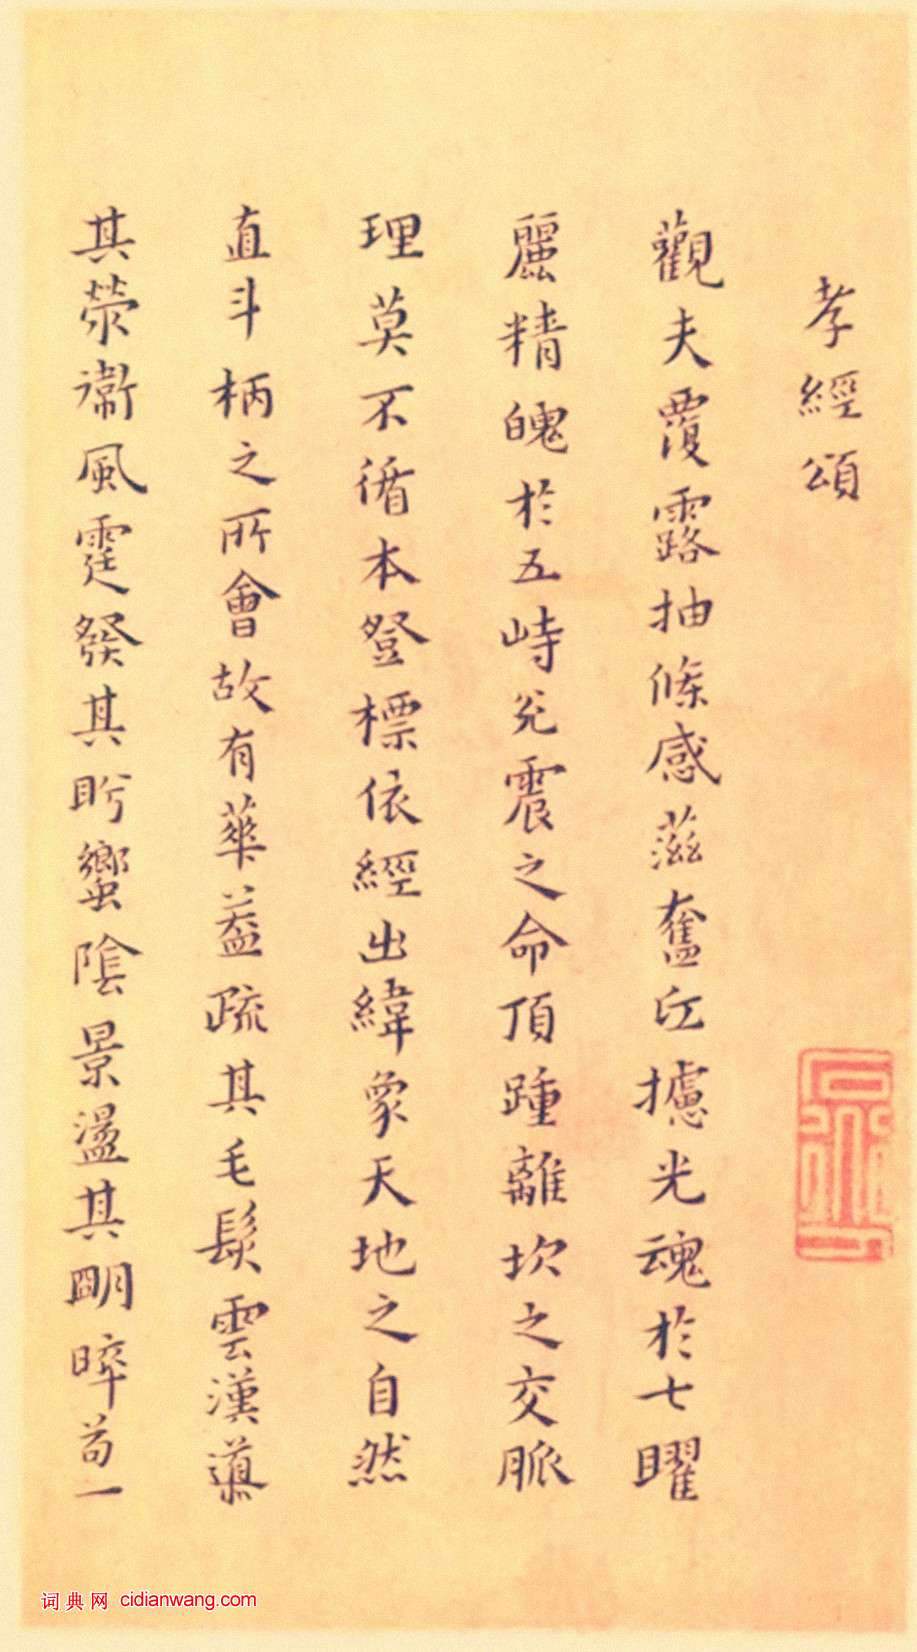 孝經頌
觀夫覆露抽條感滋奮丘攄光魂於七曜
麗精魄於五峙兊震之命頂踵離坎之交脈
理莫不循本發標依經出緯象天地之自然
直斗柄之所會故有華葢疏其毛髮雲漢導
其滎衞風霆發其盻蠁陰景盪其朙晬苟一
词典网 cidianwang.com